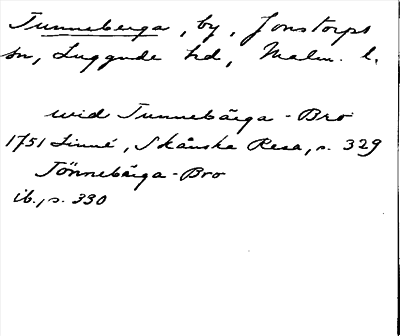 Tunneberga, by, Jonstorps
sn, Luggude hd, Malm. l.
wid Tunnebärga-Bro
1751 Linné, Skånska Resa, s. 329
Tönnebärga-Bro
ib., s. 330